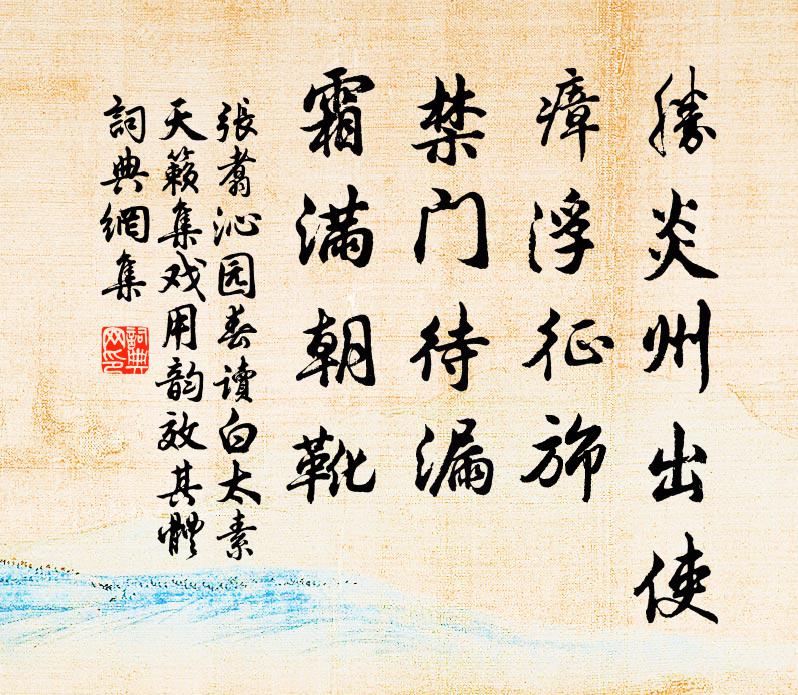 勝炎州出使
瘴浮征斾
禁门待漏
霜满朝靴
張翥沁园春读白太素
天籁集戏用韵效其體
詞典網集
詞典
网印